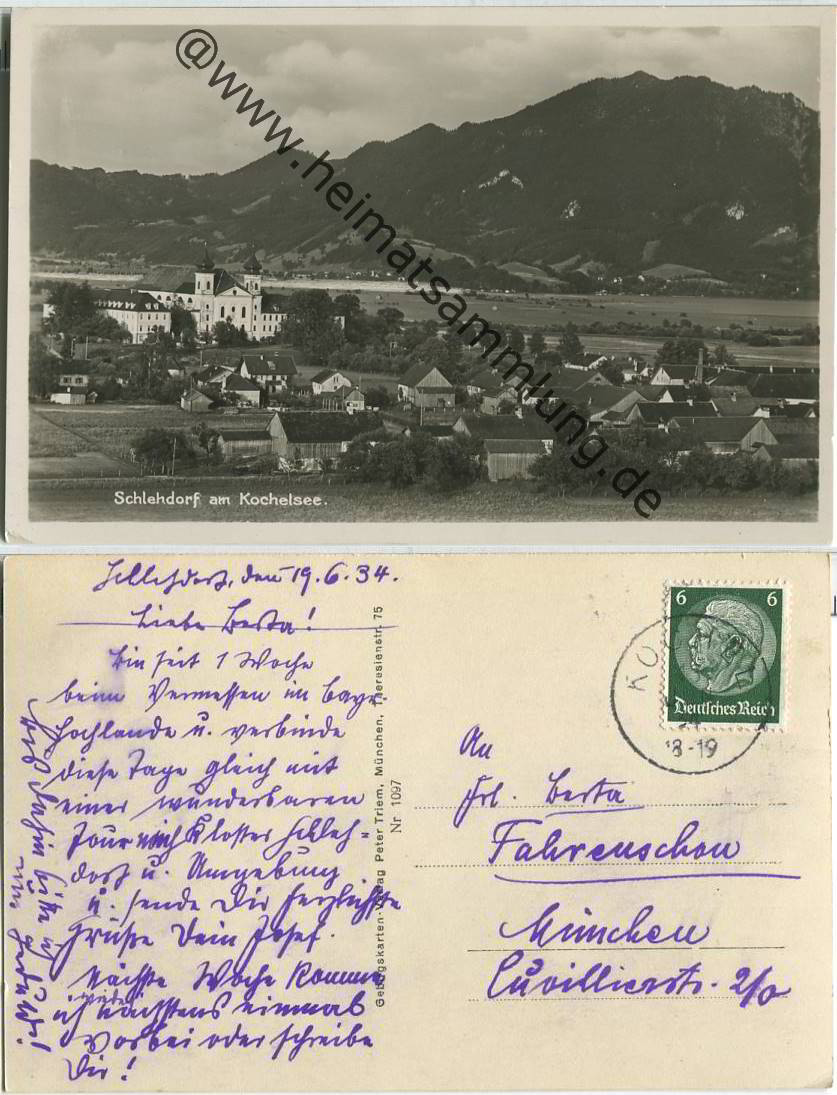 @www.heimatsammlung.de
Schlehdorf am Kochelsee.
Schlehdorf, den 19.6.34.
Liebe Berta!
Bin seit 1 Woche
beim Vermessen im bayr.
Hochlande u. verbinde
diese Tage gleich mit
einer wunderbaren
Tour nach Kloster Schleh-
dorf u. Umgebung
u. sende Dir herzlichste
Grüße Dein Josef.
Nächste Woche komme
ich wieder einmal
vorbei oder schreibe
Dir!
bitte ich
Gebirgskarten-Verlag Peter Triem, München, Theresienstr. 75
Nr. 1097
6 6
Deutsches Reich
KO
18-19
An
Frl. Berta
Fahrenschon
München
Cuvilliérstr. 2/0